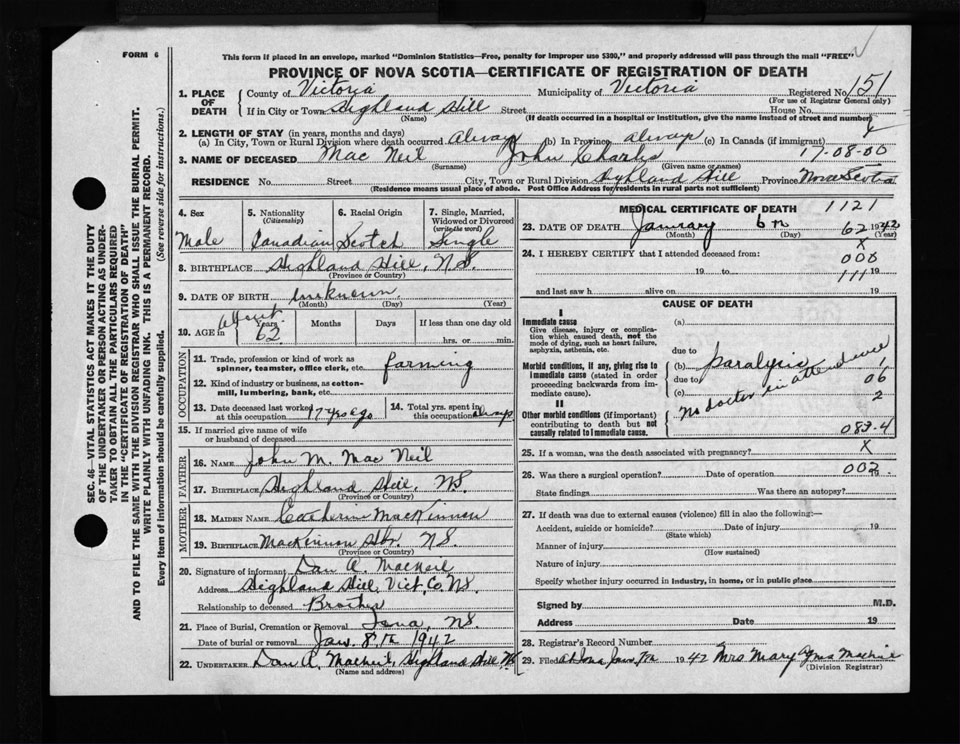 FORM 6
This form if placed in an envelope, marked "Dominion Statistics—Free, penalty for improper use $300," and properly addressed will pass through the mail "FREE"
PROVINCE OF NOVA SCOTIA—CERTIFICATE OF REGISTRATION OF DEATH
1. PLACE OF DEATH
County of Victoria Municipality of Victoria Registered No. 151
(For use of Registrar General only)
If in City or Town Highland Hill Street House No.
(Name) (If death occurred in a hospital or institution, give the name instead of street and number)
2. LENGTH OF STAY (in years, months and days)
(a) In City, Town or Rural Division where death occurred Always (b) In Province always (c) In Canada (if immigrant)
3. NAME OF DECEASED Mac Neil John Charles 17-08-00
(Surname) (Given name or names)
RESIDENCE No. Street City, Town or Rural Division Highland Hill Province Nova Scotia
(Residence means usual place of abode. Post Office Address for residents in rural parts not sufficient)
SEC. 46—VITAL STATISTICS ACT MAKES IT THE DUTY
OF THE UNDERTAKER OR PERSON ACTING AS UNDER-
TAKER TO OBTAIN ALL THE PARTICULARS REQUIRED
IN THE "CERTIFICATE OF REGISTRATION OF DEATH"
AND TO FILE THE SAME WITH THE DIVISION REGISTRAR WHO SHALL ISSUE THE BURIAL PERMIT.
WRITE PLAINLY WITH UNFADING INK. THIS IS A PERMANENT RECORD.
Every item of information should be carefully supplied. (See reverse side for instructions.)
4. Sex 5. Nationality (Citizenship) 6. Racial Origin 7. Single, Married, Widowed or Divorced (write the word)
Male Canadian Scotch Single
8. BIRTHPLACE Highland Hill, N.S.
(Province or Country)
9. DATE OF BIRTH unknown
(Month) (Day) (Year)
10. AGE in Years Months Days If less than one day old
about 62 hrs. or min.
OCCUPATION
11. Trade, profession or kind of work as spinner, teamster, office clerk, etc. farming
12. Kind of industry or business, as cotton-mill, lumbering, bank, etc.
13. Date deceased last worked at this occupation 17 yrs ago 14. Total yrs. spent in this occupation always
15. If married give name of wife or husband of deceased
FATHER
16. NAME John M. Mac Neil
17. BIRTHPLACE Highland Hill, N.S.
(Province or Country)
MOTHER
18. MAIDEN NAME Catherine MacKinnon
19. BIRTHPLACE MacKinnon Hbr. N.S.
(Province or Country)
20. Signature of informant Dan A. MacNeil
Address Highland Hill, Vict. Co. N.S.
Relationship to deceased Brother
21. Place of Burial, Cremation or Removal Iona, N.S.
Date of burial or removal Jan. 8th 1942
22. UNDERTAKER Dan A. MacNeil, Highland Hill N.S.
(Name and address)
MEDICAL CERTIFICATE OF DEATH 1121
23. DATE OF DEATH January 6th 62 1942
(Month) (Day) (Year)
24. I HEREBY CERTIFY that I attended deceased from: X 000
19 to 111 19
and last saw h alive on 19
CAUSE OF DEATH
I
Immediate cause (a)
Give disease, injury or complication which caused death, not the mode of dying, such as heart failure, asphyxia, asthenia, etc.
due to
Morbid conditions, if any, giving rise to immediate cause (stated in order proceeding backwards from immediate cause). (b) paralysis 1
due to 06
(c) no doctor in attendance 2
II
Other morbid conditions (if important) contributing to death but not causally related to immediate cause. 083-4
25. If a woman, was the death associated with pregnancy? X
26. Was there a surgical operation? Date of operation 002 19
State findings Was there an autopsy?
27. If death was due to external causes (violence) fill in also the following:—
Accident, suicide or homicide? Date of injury 19
(State which)
Manner of injury
(How sustained)
Nature of injury
Specify whether injury occurred in industry, in home, or in public place
Signed by M.D.
Address Date 19
28. Registrar's Record Number
29. Filed at Iona Jan. 7th 1942 Mrs Mary
(Division Registrar)